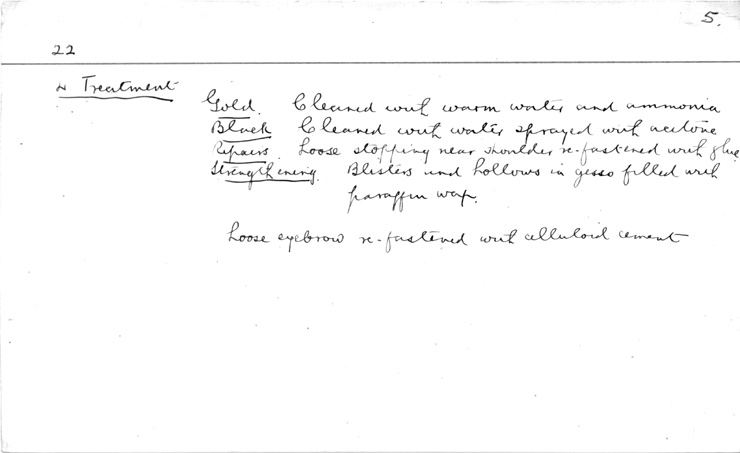 5.
22
Treatment
Gold. Cleaned with warm water and ammonia
Black Cleaned with water sprayed with acetone
Repairs Loose stopping near shoulder re-fastened with glue
Strengthening. Blisters and hollows in gesso filled with
paraffin wax.
Loose eyebrow re-fastened with celluloid cement